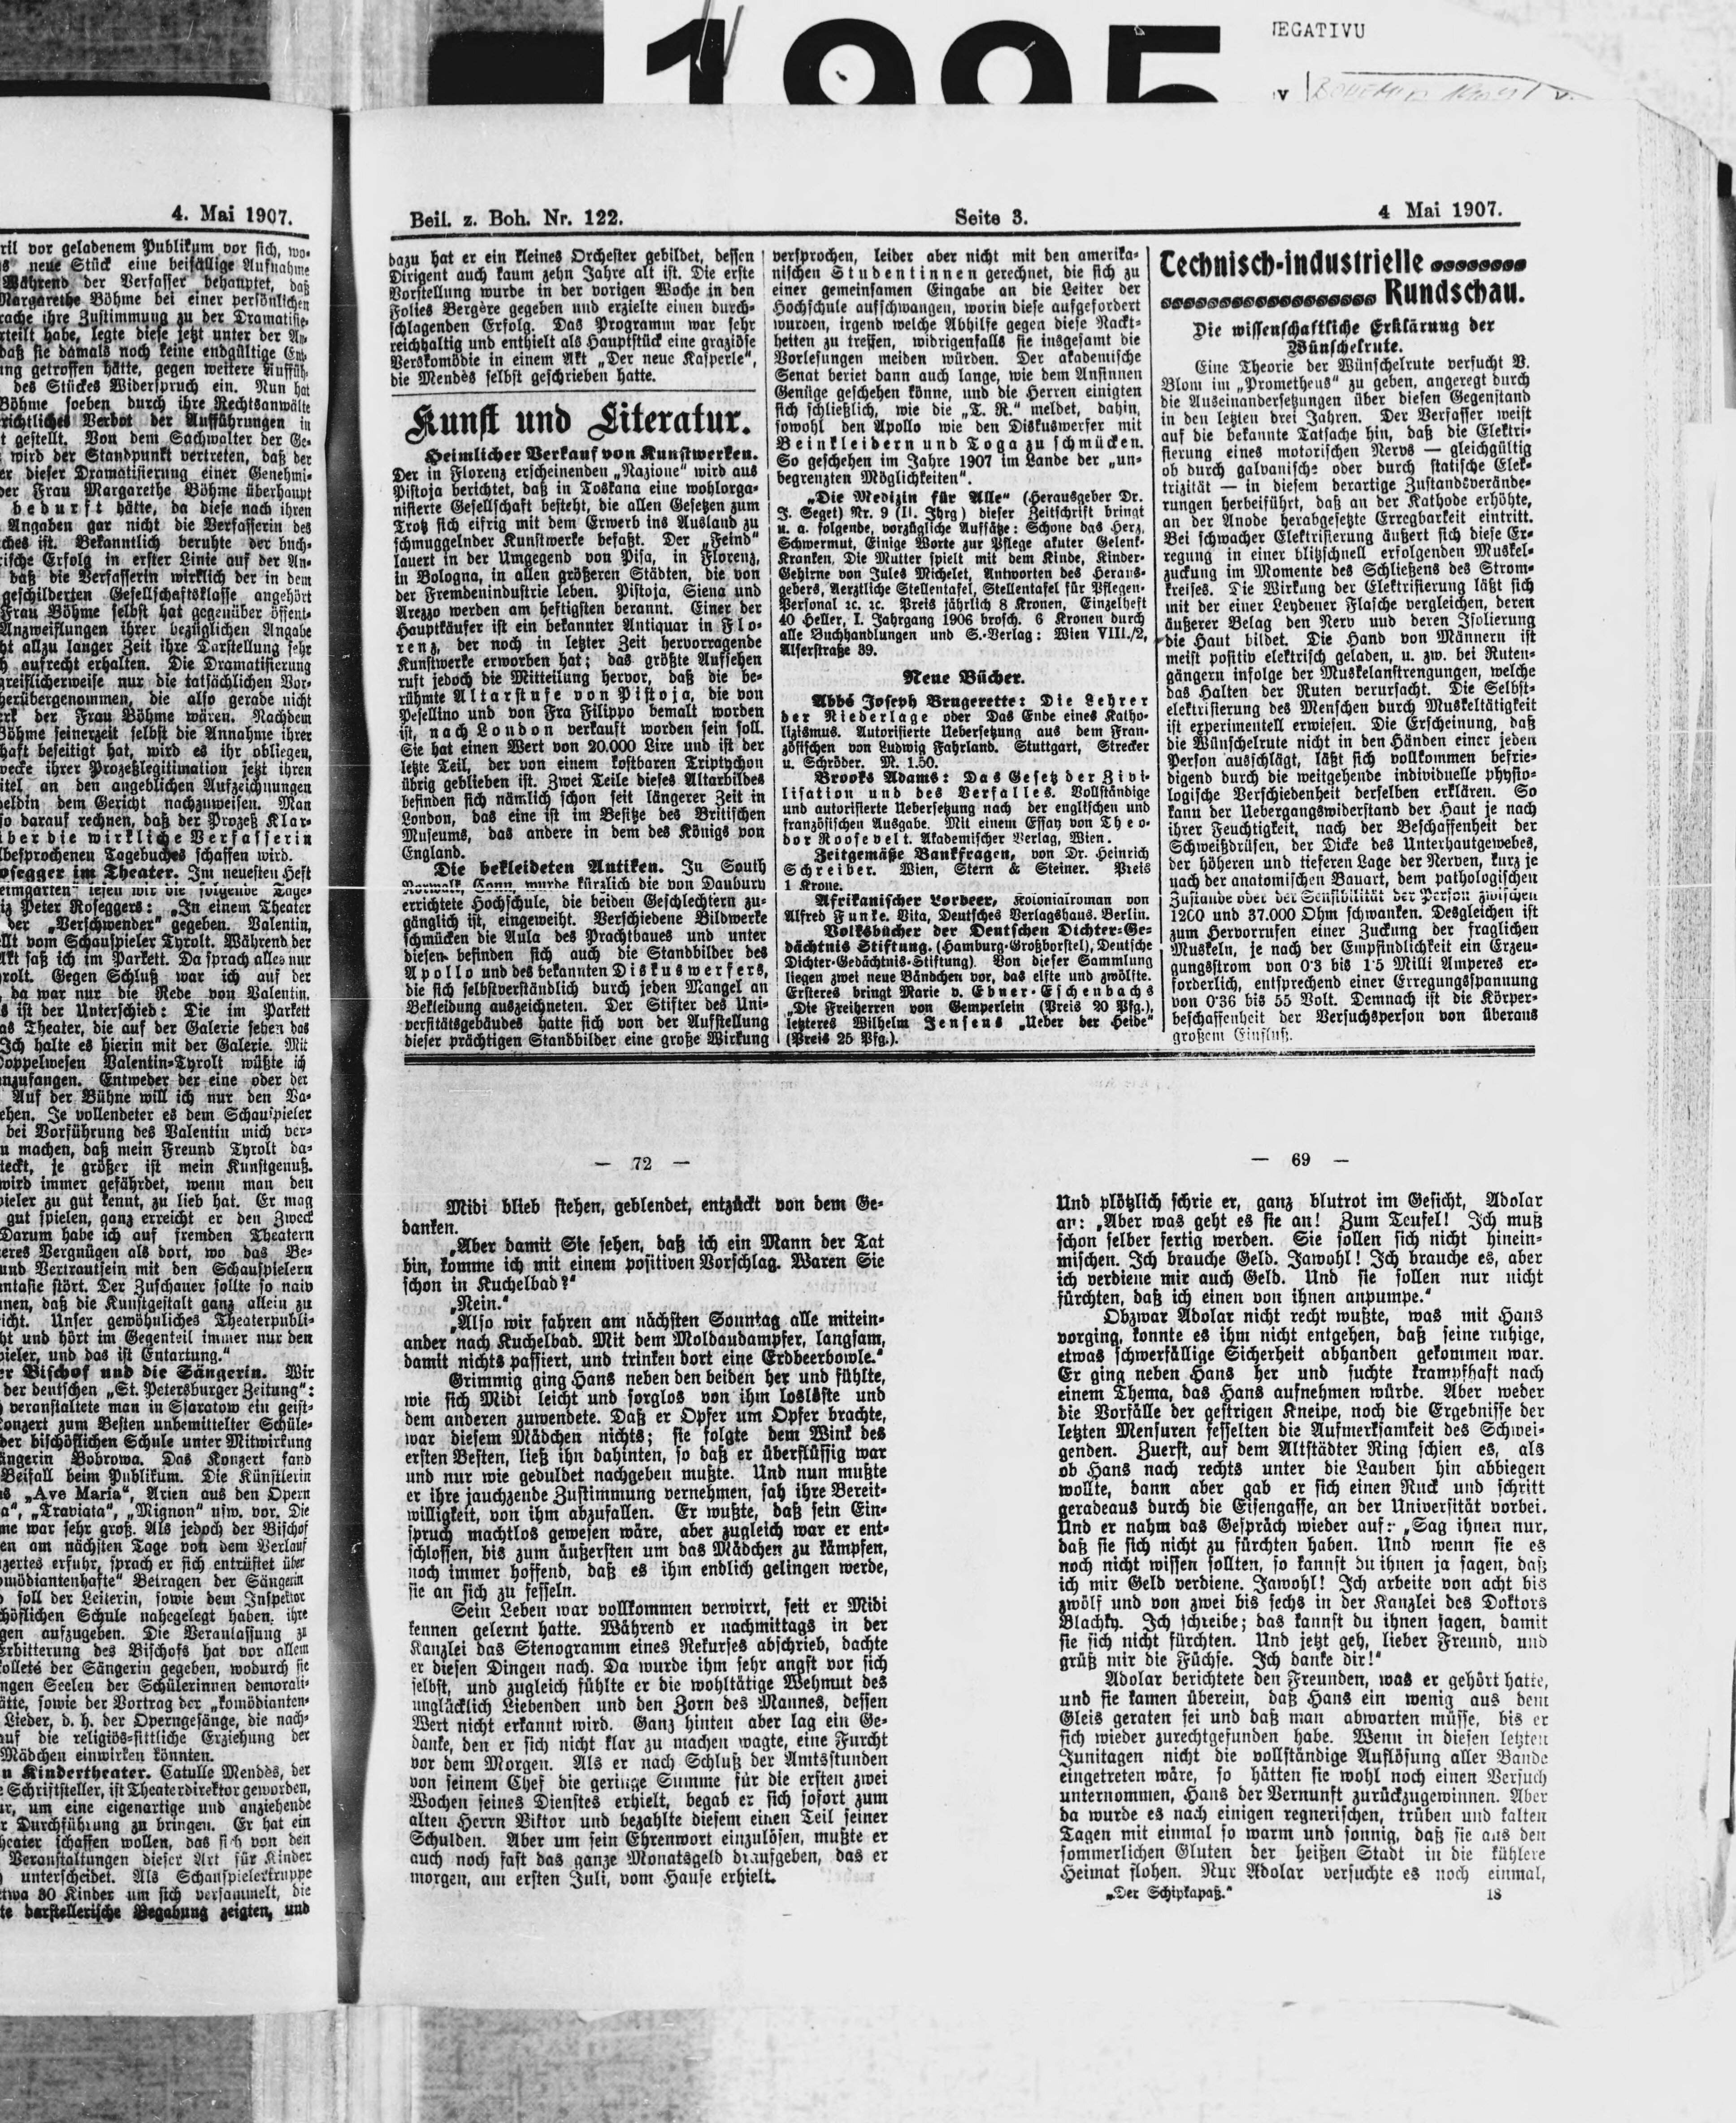 1995
NEGATIVU
4. Mai 1907.
ril vor geladenem Publikum vor sich, wo-
s neue Stück eine beifällige Aufnahme
Während der Verfasser behauptet, daß
Margarethe Böhme bei einer persönlichen
rache ihre Zustimmung zu der Dramatisie-
rteilt habe, legte diese jetzt unter der An-
daß sie damals noch keine endgültige Ent-
ung getroffen hätte, gegen weitere Auffüh-
des Stückes Widerspruch ein. Nun hat
Böhme soeben durch ihre Rechtsanwälte
richtliches Verbot der Aufführungen in
t gestellt. Von dem Sachwalter der Ge-
wird der Standpunkt vertreten, daß der
er dieser Dramatisierung einer Genehmi-
der Frau Margarethe Böhme überhaupt
bedurft hätte, da diese nach ihren
Angaben gar nicht die Verfasserin des
ches ist. Bekanntlich beruhte der buch-
rische Erfolg in erster Linie auf der An-
daß die Verfasserin wirklich der in dem
geschilderten Gesellschaftsklasse angehört
Frau Böhme selbst hat gegenüber öffent-
Anzweiflungen ihrer bezüglichen Angabe
ht allzu langer Zeit ihre Darstellung sehr
h aufrecht erhalten. Die Dramatisierung
greiflicherweise nur die tatsächlichen Vor-
herübergenommen, die also gerade nicht
erk der Frau Böhme wären. Nachdem
Böhme seinerzeit selbst die Annahme ihrer
haft beseitigt hat, wird es ihr obliegen,
wecke ihrer Prozeßlegitimation jetzt ihren
itel an den angeblichen Aufzeichnungen
eldin dem Gericht nachzuweisen. Man
so darauf rechnen, daß der Prozeß Klar-
über die wirkliche Verfasserin
lbesprochenen Tagebuches schaffen wird.
osegger im Theater. Im neuesten Heft
eimgarten" lesen wir die folgende Tage-
iz Peter Roseggers: „In einem Theater
der „Verschwender" gegeben. Valentin,
ellt vom Schauspieler Tyrolt. Während der
Akt saß ich im Parkett. Da sprach alles nur
yrolt. Gegen Schluß war ich auf der
, da war nur die Rede von Valentin.
s ist der Unterschied: Die im Parkett
as Theater, die auf der Galerie sehen das
Ich halte es hierin mit der Galerie. Mit
Doppelwesen Valentin-Tyrolt wüßte ich
anzufangen. Entweder der eine oder der
Auf der Bühne will ich nur den Va-
ehen. Je vollendeter es dem Schauspieler
bei Vorführung des Valentin mich ver-
u machen, daß mein Freund Tyrolt da-
teckt, je größer ist mein Kunstgenuß.
wird immer gefährdet, wenn man den
pieler zu gut kennt, zu lieb hat. Er mag
gut spielen, ganz erreicht er den Zweck
Darum habe ich auf fremden Theatern
eres Vergnügen als dort, wo das Be-
und Vertrautsein mit den Schauspielern
ntasie stört. Der Zuschauer sollte so naiv
nnen, daß die Kunstgestalt ganz allein zu
icht. Unser gewöhnliches Theaterpubli-
ht und hört im Gegenteil immer nur den
pieler, und das ist Entartung."
er Bischof und die Sängerin. Wir
der deutschen „St. Petersburger Zeitung":
veranstaltete man in Sjaratow ein geist-
Konzert zum Besten unbemittelter Schüle-
der bischöflichen Schule unter Mitwirkung
ängerin Bobrowa. Das Konzert fand
Beifall beim Publikum. Die Künstlerin
s „Ave Maria", Arien aus den Opern
a", „Traviata", „Mignon" usw. vor. Die
me war sehr groß. Als jedoch der Bischof
en am nächsten Tage von dem Verlauf
zertes erfuhr, sprach er sich entrüstet über
omödiantenhafte" Betragen der Sängerin
soll der Leiterin, sowie dem Inspektor
höflichen Schule nahegelegt haben, ihre
gen aufzugeben. Die Veranlassung zu
Erbitterung des Bischofs hat vor allem
olleté der Sängerin gegeben, wodurch sie
ngen Seelen der Schülerinnen demorali-
ätte, sowie der Vortrag der „komödianten-
Lieder, d. h. der Operngesänge, die nach-
auf die religiös-sittliche Erziehung der
Mädchen einwirken könnten.
n Kindertheater. Catulle Mendès, der
Schriftsteller, ist Theaterdirektor geworden,
ur, um eine eigenartige und anziehende
r Durchführung zu bringen. Er hat ein
heater schaffen wollen, das sich von den
Veranstaltungen dieser Art für Kinder
unterscheidet. Als Schauspielertruppe
etwa 30 Kinder um sich versammelt, die
te darstellerische Begabung zeigten, und
Beil. z. Boh. Nr. 122.
Seite 3.
4 Mai 1907.
dazu hat er ein kleines Orchester gebildet, dessen
Dirigent auch kaum zehn Jahre alt ist. Die erste
Vorstellung wurde in der vorigen Woche in den
Folies Bergère gegeben und erzielte einen durch-
schlagenden Erfolg. Das Programm war sehr
reichhaltig und enthielt als Hauptstück eine graziöse
Verskomödie in einem Akt „Der neue Kasperle",
die Mendès selbst geschrieben hatte.
Kunst und Literatur.
Heimlicher Verkauf von Kunstwerken.
Der in Florenz erscheinenden „Nazione" wird aus
Pistoja berichtet, daß in Toskana eine wohlorga-
nisierte Gesellschaft besteht, die allen Gesetzen zum
Trotz sich eifrig mit dem Erwerb ins Ausland zu
schmuggelnder Kunstwerke befaßt. Der „Feind"
lauert in der Umgegend von Pisa, in Florenz,
in Bologna, in allen größeren Städten, die von
der Fremdenindustrie leben. Pistoja, Siena und
Arezzo werden am heftigsten berannt. Einer der
Hauptkäufer ist ein bekannter Antiquar in Flo-
renz, der noch in letzter Zeit hervorragende
Kunstwerke erworben hat; das größte Aufsehen
ruft jedoch die Mitteilung hervor, daß die be-
rühmte Altarstufe von Pistoja, die von
Pesellino und von Fra Filippo bemalt worden
ist, nach London verkauft worden sein soll.
Sie hat einen Wert von 20.000 Lire und ist der
letzte Teil, der von einem kostbaren Triptychon
übrig geblieben ist. Zwei Teile dieses Altarbildes
befinden sich nämlich schon seit längerer Zeit in
London, das eine ist im Besitze des Britischen
Museums, das andere in dem des Königs von
England.
Die bekleideten Antiken. In South
Norwalk, Conn. wurde kürzlich die von Danbury
errichtete Hochschule, die beiden Geschlechtern zu-
gänglich ist, eingeweiht. Verschiedene Bildwerke
schmücken die Aula des Prachtbaues und unter
diesen befinden sich auch die Standbilder des
Apollo und des bekannten Diskuswerfers,
die sich selbstverständlich durch jeden Mangel an
Bekleidung auszeichneten. Der Stifter des Uni-
versitätsgebäudes hatte sich von der Aufstellung
dieser prächtigen Standbilder eine große Wirkung
versprochen, leider aber nicht mit den amerika-
nischen Studentinnen gerechnet, die sich zu
einer gemeinsamen Eingabe an die Leiter der
Hochschule aufschwangen, worin diese aufgefordert
wurden, irgend welche Abhilfe gegen diese Nackt-
heiten zu treffen, widrigenfalls sie insgesamt die
Vorlesungen meiden würden. Der akademische
Senat beriet dann auch lange, wie dem Ansinnen
Genüge geschehen könne, und die Herren einigten
sich schließlich, wie die „T. R." meldet, dahin,
sowohl den Apollo wie den Diskuswerfer mit
Beinkleidern und Toga zu schmücken.
So geschehen im Jahre 1907 im Lande der „un-
begrenzten Möglichkeiten".
„Die Medizin für Alle" (Herausgeber Dr.
J. Seget) Nr. 9 (II. Jhrg) dieser Zeitschrift bringt
u. a. folgende, vorzügliche Aufsätze: Schone das Herz,
Schwermut, Einige Worte zur Pflege akuter Gelenk-
Kranken, Die Mutter spielt mit dem Kinde, Kinder-
Gehirne von Jules Michelet, Antworten des Heraus-
gebers, Aerztliche Stellentafel, Stellentafel für Pflegen-
Personal ꝛc. ꝛc. Preis jährlich 8 Kronen, Einzelheft
40 Heller, I. Jahrgang 1906 brosch. 6 Kronen durch
alle Buchhandlungen und S.-Verlag: Wien VIII./2,
Alserstraße 39.
Neue Bücher.
Abbé Joseph Brugerette: Die Lehrer
der Niederlage oder Das Ende eines Katho-
lizismus. Autorisierte Uebersetzung aus dem Fran-
zösischen von Ludwig Fahrland. Stuttgart, Strecker
u. Schröder. M. 1.50.
Brooks Adams: Das Gesetz der Zivi-
lisation und des Verfalles. Vollständige
und autorisierte Uebersetzung nach der englischen und
französischen Ausgabe. Mit einem Essay von Theo-
dor Roosevelt. Akademischer Verlag, Wien.
Zeitgemäße Bankfragen, von Dr. Heinrich
Schreiber. Wien, Stern & Steiner. Preis
1 Krone.
Afrikanischer Lorbeer, Kolonialroman von
Alfred Funke. Vita, Deutsches Verlagshaus. Berlin.
Volksbücher der Deutschen Dichter-Ge-
dächtnis Stiftung. (Hamburg-Großborstel), Deutsche
Dichter-Gedächtnis-Stiftung). Von dieser Sammlung
liegen zwei neue Bändchen vor, das elfte und zwölfte.
Ersteres bringt Marie v. Ebner-Eschenbachs
„Die Freiherren von Gemperlein (Preis 20 Pfg.),
letzteres Wilhelm Jensens „Ueber der Heide"
(Preis 25 Pfg.).
Technisch-industrielle
Rundschau.
Die wissenschaftliche Erklärung der
Wünschelrute.
Eine Theorie der Wünschelrute versucht V.
Blom im „Prometheus" zu geben, angeregt durch
die Auseinandersetzungen über diesen Gegenstand
in den letzten drei Jahren. Der Verfasser weist
auf die bekannte Tatsache hin, daß die Elektri-
sierung eines motorischen Nervs — gleichgültig
ob durch galvanische oder durch statische Elek-
trizität — in diesem derartige Zustandsverände-
rungen herbeiführt, daß an der Kathode erhöhte,
an der Anode herabgesetzte Erregbarkeit eintritt.
Bei schwacher Elektrisierung äußert sich diese Er-
regung in einer blitzschnell erfolgenden Muskel-
zuckung im Momente des Schließens des Strom-
kreises. Die Wirkung der Elektrisierung läßt sich
mit der einer Leydener Flasche vergleichen, deren
äußerer Belag den Nerv und deren Isolierung
die Haut bildet. Die Hand von Männern ist
meist positiv elektrisch geladen, u. zw. bei Ruten-
gängern infolge der Muskelanstrengungen, welche
das Halten der Ruten verursacht. Die Selbst-
elektrisierung des Menschen durch Muskeltätigkeit
ist experimentell erwiesen. Die Erscheinung, daß
die Wünschelrute nicht in den Händen einer jeden
Person ausschlägt, läßt sich vollkommen befrie-
digend durch die weitgehende individuelle physio-
logische Verschiedenheit derselben erklären. So
kann der Uebergangswiderstand der Haut je nach
ihrer Feuchtigkeit, nach der Beschaffenheit der
Schweißdrüsen, der Dicke des Unterhautgewebes,
der höheren und tieferen Lage der Nerven, kurz je
nach der anatomischen Bauart, dem pathologischen
Zustande oder der Sensibilität der Person zwischen
1200 und 37.000 Ohm schwanken. Desgleichen ist
zum Hervorrufen einer Zuckung der fraglichen
Muskeln, je nach der Empfindlichkeit ein Erzeu-
gungsstrom von 0·3 bis 1·5 Milli Amperes er-
forderlich, entsprechend einer Erregungsspannung
von 0·36 bis 55 Volt. Demnach ist die Körper-
beschaffenheit der Versuchsperson von überaus
großem Einfluß.
— 72 —
Midi blieb stehen, geblendet, entzückt von dem Ge-
danken.
„Aber damit Sie sehen, daß ich ein Mann der Tat
bin, komme ich mit einem positiven Vorschlag. Waren Sie
schon in Kuchelbad?"
„Nein."
„Also wir fahren am nächsten Sonntag alle mitein-
ander nach Kuchelbad. Mit dem Moldaudampfer, langsam,
damit nichts passiert, und trinken dort eine Erdbeerbowle."
Grimmig ging Hans neben den beiden her und fühlte,
wie sich Midi leicht und sorglos von ihm loslöste und
dem anderen zuwendete. Daß er Opfer um Opfer brachte,
war diesem Mädchen nichts; sie folgte dem Wink des
ersten Besten, ließ ihn dahinten, so daß er überflüssig war
und nur wie geduldet nachgeben mußte. Und nun mußte
er ihre jauchzende Zustimmung vernehmen, sah ihre Bereit-
willigkeit, von ihm abzufallen. Er wußte, daß sein Ein-
spruch machtlos gewesen wäre, aber zugleich war er ent-
schlossen, bis zum äußersten um das Mädchen zu kämpfen,
noch immer hoffend, daß es ihm endlich gelingen werde,
sie an sich zu fesseln.
Sein Leben war vollkommen verwirrt, seit er Midi
kennen gelernt hatte. Während er nachmittags in der
Kanzlei das Stenogramm eines Rekurses abschrieb, dachte
er diesen Dingen nach. Da wurde ihm sehr angst vor sich
selbst, und zugleich fühlte er die wohltätige Wehmut des
unglücklich Liebenden und den Zorn des Mannes, dessen
Wert nicht erkannt wird. Ganz hinten aber lag ein Ge-
danke, den er sich nicht klar zu machen wagte, eine Furcht
vor dem Morgen. Als er nach Schluß der Amtsstunden
von seinem Chef die geringe Summe für die ersten zwei
Wochen seines Dienstes erhielt, begab er sich sofort zum
alten Herrn Viktor und bezahlte diesem einen Teil seiner
Schulden. Aber um sein Ehrenwort einzulösen, mußte er
auch noch fast das ganze Monatsgeld draufgeben, das er
morgen, am ersten Juli, vom Hause erhielt.
— 69 —
Und plötzlich schrie er, ganz blutrot im Gesicht, Adolar
an: „Aber was geht es sie an! Zum Teufel! Ich muß
schon selber fertig werden. Sie sollen sich nicht hinein-
mischen. Ich brauche Geld. Jawohl! Ich brauche es, aber
ich verdiene mir auch Geld. Und sie sollen nur nicht
fürchten, daß ich einen von ihnen anpumpe."
Obzwar Adolar nicht recht wußte, was mit Hans
vorging, konnte es ihm nicht entgehen, daß seine ruhige,
etwas schwerfällige Sicherheit abhanden gekommen war.
Er ging neben Hans her und suchte krampfhaft nach
einem Thema, das Hans aufnehmen würde. Aber weder
die Vorfälle der gestrigen Kneipe, noch die Ergebnisse der
letzten Mensuren fesselten die Aufmerksamkeit des Schwei-
genden. Zuerst, auf dem Altstädter Ring schien es, als
ob Hans nach rechts unter die Lauben hin abbiegen
wollte, dann aber gab er sich einen Ruck und schritt
geradeaus durch die Eisengasse, an der Universität vorbei.
Und er nahm das Gespräch wieder auf: „Sag ihnen nur,
daß sie sich nicht zu fürchten haben. Und wenn sie es
noch nicht wissen sollten, so kannst du ihnen ja sagen, daß
ich mir Geld verdiene. Jawohl! Ich arbeite von acht bis
zwölf und von zwei bis sechs in der Kanzlei des Doktors
Blachky. Ich schreibe; das kannst du ihnen sagen, damit
sie sich nicht fürchten. Und jetzt geh, lieber Freund, und
grüß mir die Füchse. Ich danke dir!"
Adolar berichtete den Freunden, was er gehört hatte,
und sie kamen überein, daß Hans ein wenig aus dem
Gleis geraten sei und daß man abwarten müsse, bis er
sich wieder zurechtgefunden habe. Wenn in diesen letzten
Junitagen nicht die vollständige Auflösung aller Bande
eingetreten wäre, so hätten sie wohl noch einen Versuch
unternommen, Hans der Vernunft zurückzugewinnen. Aber
da wurde es nach einigen regnerischen, trüben und kalten
Tagen mit einmal so warm und sonnig, daß sie aus den
sommerlichen Gluten der heißen Stadt in die kühlere
Heimat flohen. Nur Adolar versuchte es noch einmal,
„Der Schipkapaß."
18